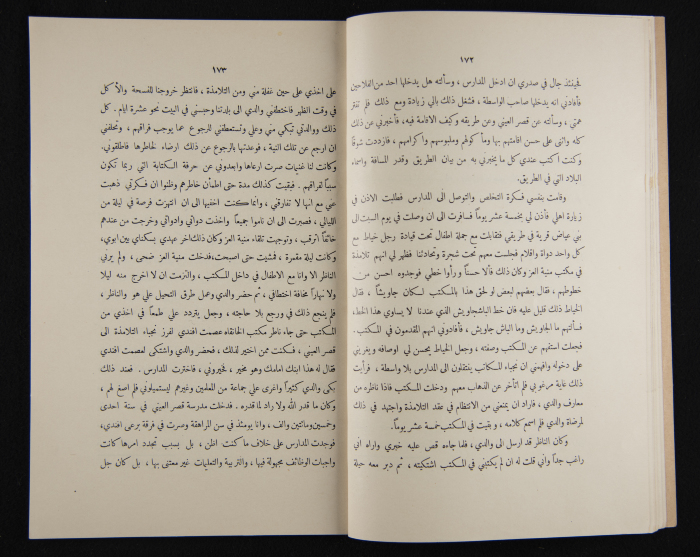 ١٧٢
فحينئذ جال في صدري ان ادخل المدارس ، وسألته هل يدخلها احد من الفلاحين
فأفادني انه يدخلها صاحب الواسطة ، فشغل ذلك بالي زيادة ومع ذلك فلم تفتر
همتي ، وسألته عن قصر العيني وعن طريقه وكيف الاقامة فيه، فأخبرني عن ذلك
كله واثنى على حسن اقامتهم بها ومأكولهم وملبوسهم واكرامهم ، فازددت شوقاً
وكنت اكتب عندي كل ما يخبرني به من بيان الطريق وقدر المسافة واسماء
البلاد التي في الطريق.
وقامت بنفسي فكرة التخلص والتوصل الى المدارس فطلبت الاذن في
زيارة اهلي فأذن لي بخمسة عشر يوماً فسافرت الى ان وصلت في يوم السبت الى
بني عياض قرية في طريقي فتقابلت مع جملة اطفال تحت قيادة رجل خياط مع
كل واحد دواة واقلام فجلست معهم تحت شجرة وتحادثنا فظهر لي انهم تلامذة
في مكتب منية العز وكان ذلك فألا حسناً ورأوا خطي فوجدوه احسن من
خطوطهم ، فقال بعضهم لبعض لو لحق هذا بالمكتب لكان جاويشاً ، فقال
الخياط ذلك قليل عليه فان خط الباشجاويش الذي عندنا لا يساوي هذا الخط،
فسألتهم ما الجاويش وما الباش جاويش ، فأفادوني انهم المقدمون في المكتب.
فجعلت استفهم عن المكتب وصفته ، وجعل الخياط يحسن لي اوصافه ويغريني
على دخوله وافهمني ان نجباء المكاتب ينتقلون الى المدارس بلا واسطة ، فرأيت
ذلك غاية مرغوبي فلم اتأخر عن الذهاب معهم ودخلت المكتب فاذا ناظره من
معارف والدي ، فاراد ان يمنعني من الانتظام في عقد التلامذة واجتهد في ذلك
لمرضاة والدي فلم اسمع كلامه ، و بقيت في المكتب خمسة عشر يوماً.
وكان الناظر قد ارسل الى والدي ، فلما جاءه قص عليه خبري واراه اني
راغب جداً واني قلت له ان لم يكتبني في المكتب اشتكيته ، ثم دبر معه حيلة
١٧٣
على اخذي على حين غفلة مني ومن التلامذة ، فانتظر خروجنا للفسحة والأكل
في وقت الظهر فاختطفني والدي الى بلدتنا وحبسني في البيت نحو عشرة ايام . كل
ذلك ووالدتي تبكي مني وعلي وتستعطفني للرجوع عما يوجب فراقهم ، وتحلفني
ان ارجع عن تلك النية ، فوعدتها بالرجوع عن ذلك ارضاء لخاطرها فاطلقوني.
وكانت لنا غنيمات صرت ارعاها وابعدوني عن حرفة الكتابة التي ربما تكون
سبباً لفراقهم ، فبقيت كذلك مدة حتى اطمأن خاطرهم وظنوا ان فكرتي ذهبت
عني مع انها لا تفارقني ، وانما كنت اخفيها الى ان انتهزت فرصة في ليلة من
الليالي ، فصبرت الى ان ناموا جميعاً واخذت دواتي وادواتي وخرجت من عندهم
خائفاً اترقب ، وتوجهت تلقاء منية العز وكان ذلك اخر عهدي بسكناي بين ابوي،
وكانت ليلة مقمرة ، فمشيت حتى اصبحت، فدخلت منية العز ضحى ، ولم يرني
الناظر الا وانا مع الاطفال في داخل المكتب ، والتزمت ان لا اخرج منه ليلا
ولا نهاراً مخافة اختطافي ، ثم حضر والدي وعمل طرق التحيل علي هو والناظر ،
فلم ينجع ذلك في ورجع بلا حاجته ، وجعل يتردد علي طمعاً في اخذي من
المكتب حتى جاء ناظر مكتب الخانقاه عصمت افندي لفرز نجباء التلامذة الى
قصر العيني ، فكنت ممن اختير لذلك ، فحضر والدي واشتكى لعصمت افندي
فقال له هذا ابنك امامك وهو مخير ، فخيروني ، فاخترت المدارس . فعند ذلك
بكى والدي كثيراً واغرى علي جماعة من المعلمين وغيرهم ليستميلوني فلم اصغ لهم ،
وكان ما قدر الله ولا راد لما قدره . فدخلت مدرسة قصر العيني في سنة احدى
وخمسين ومائتين والف ، وانا يومئذ في سن المراهقة وصرت في فرقة برعى افندي،
فوجدت المدارس على خلاف ما كنت اظن ، بل بسبب تجدد امرها كانت
واجبات الوظائف مجهولة فيها ، والتربية والتعليمات غير معتنى بها ، بل كان جل